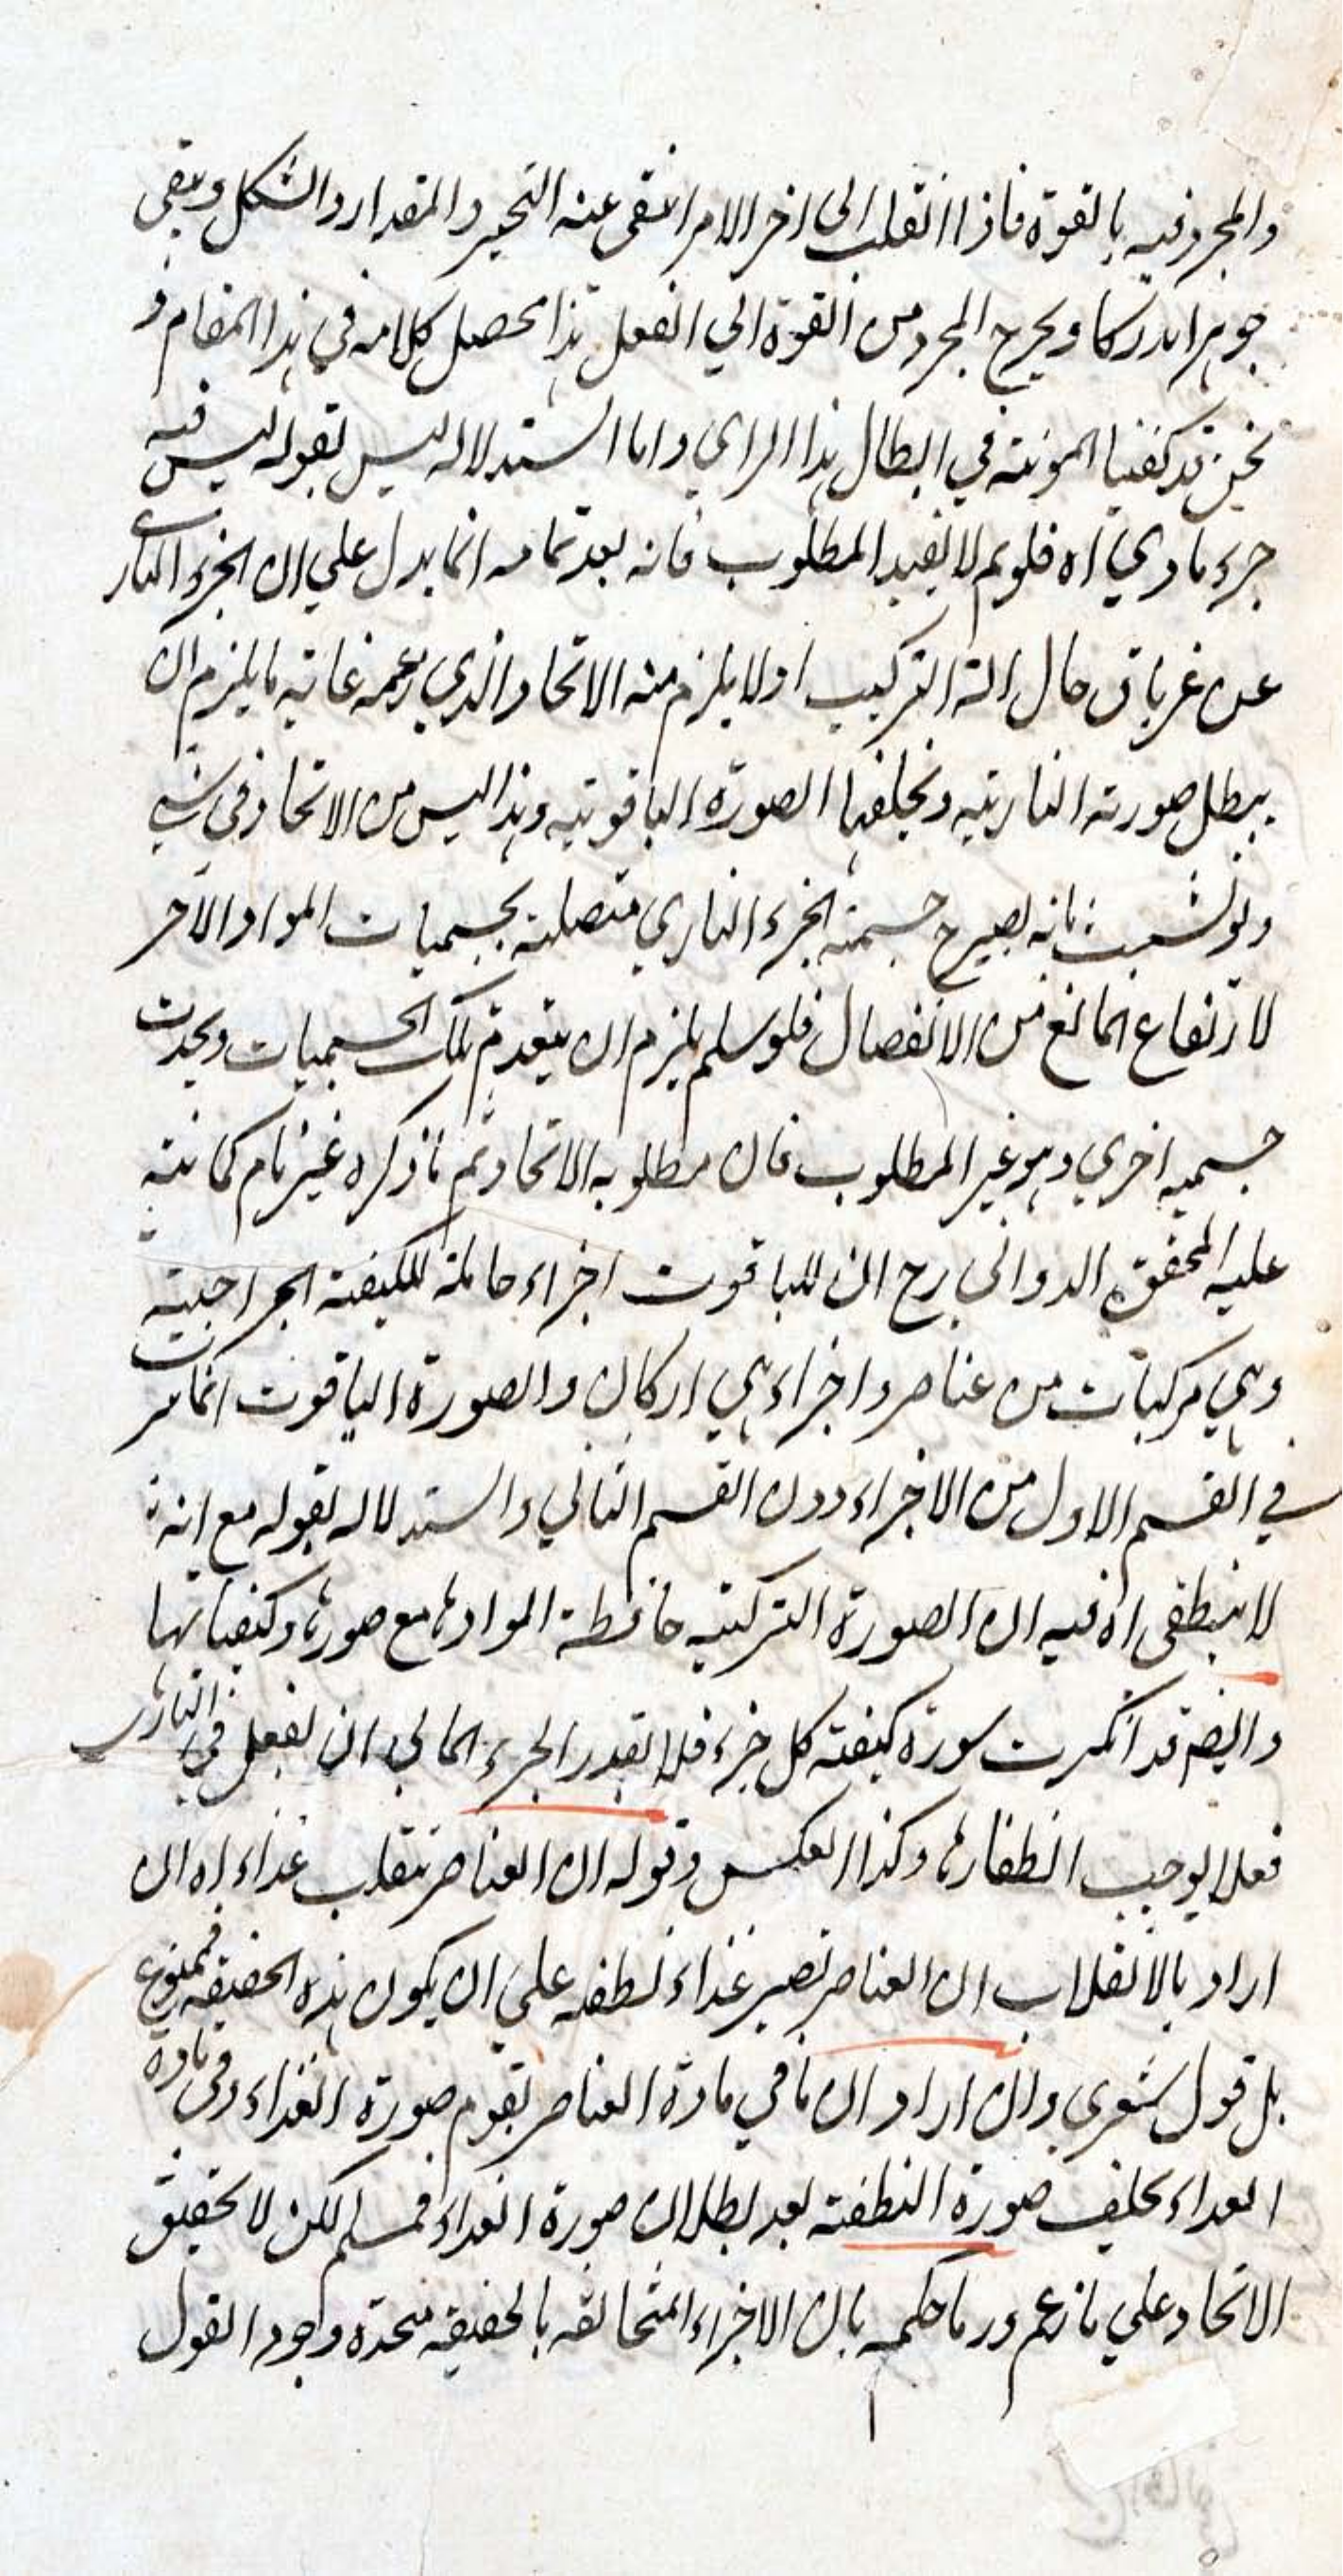 والمجرد فيه بالقوة فاذا انقلب الى اخر الامر انتفى عنه التحيز والمقدار والشكل وبقى
جوهرا مدركا ويخرج المجرد من القوة الي الفعل هذا محصل كلامه في هذا المقام و
نحن قد كفينا المؤنته في ابطال هذا الراي واما استدلاله ليس بقوله ليس فيه
جزء مادي اه فلو تم لا يفيد المطلوب فانه بعد تمامه انما يدل علي ان الجزء الناري
عن غر باق حال التركيب اولا يلزم منه الاتحاد الذي زعمه غاية ما يلزم ان
يبطل صورته النارية ويخلفها الصورة الياقوتيه وهذا ليس من الاتحاد في شي
ولو تشبث بانه يصير ح جسمية الجزء الناري متصلة بجسميات المواد الآخر
لارتفاع المانع من الانفصال فلو سلم يلزم ان ينعدم تلك الجسميات ويحدث
جسميه اخري وهو غير المطلوب فان مطلوبه الاتحاد ثم ما ذكره غير تام كما نبه
عليه المحقق الدواني رح ان للياقوت اجزاء حاملة للكيفية المزاجية
وهي مركبات من عناصر واجزاء هي اركان والصورة الياقوت انما سرت
في القسم الاول من الاجزاء دون القسم الثاني واستدلاله بقوله مع انه
لا ينطفى اه فيه ان الصورة التركيبيه حافظة المواد ها مع صورها وكيفياتها
وايضم قد انكسرت سورة كيفية كل جزء فلا يقدر الجزء المائي ان يفعل في الناري
فعلا يوجب انطفاءها وكذا العكس وقوله ان العناصر تنقلب غذاء اه ان
اراد بالانقلاب ان العناصر تصير غذاء نطفه علي ان يكون هذه الحقيقه فممنوع
بل قول شعري وان اراد ان ما في مادة العناصر تقوم صورة الغذاء وفي مادة
الغداء يخلف صورة النطفة بعد بطلان صورة الغداء فمسلم لكن لا تحقيق
الاتحاد علي ما زعم وربما حكم بان الاجزاء المتخالفه بالحقيقه متحدة وجود القول